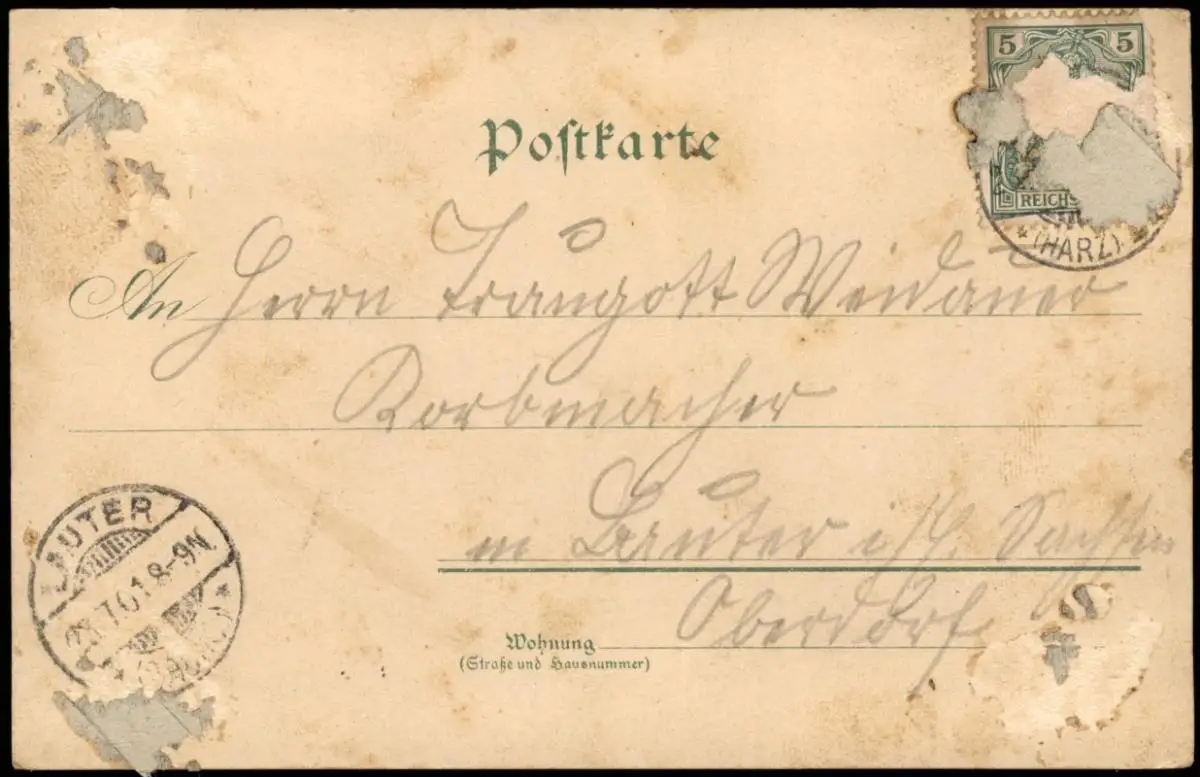 5 5
Postkarte
REICHS
* (HARZ) *
An Herrn Traugott Weidauer
Korbmacher
in Lauter i/ Sachsen
Oberdorf.
LAUTER
7.01.8-9N
Wohnung
(Straße und Hausnummer)